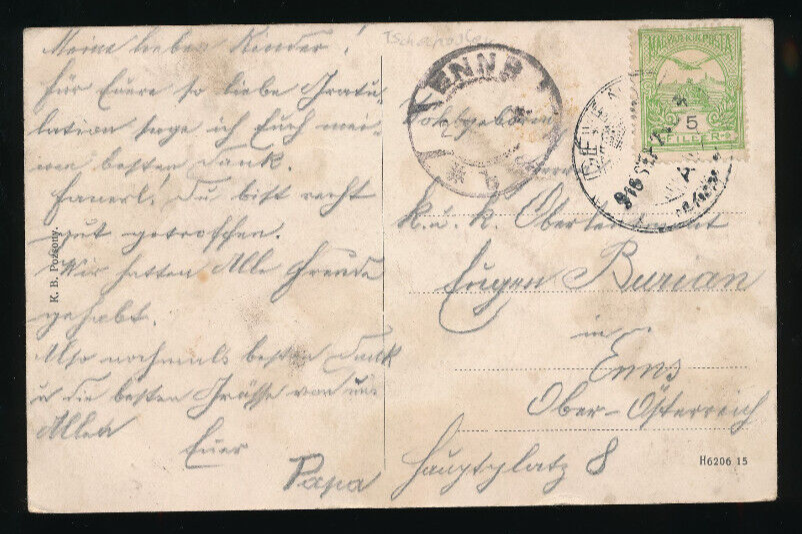 Meine lieben Kinder!
Für Euere so liebe Gratu-
lation sage ich Euch mei-
nen besten Dank.
Fanerl! Du bist recht
gut getroffen.
Wir hatten Alle Freude
gehabt.
Also nochmals besten Dank
u die besten Grüsse von uns
Allen
Euer
Papa
K. B. Pozsony.
ENNS
MAGYAR KIR. POSTA
5
FILLER
Hochgeboren
Herrn
k. u. k. Oberleutnant
Eugen Burian
in
Enns
Ober-Österreich
Hauptplatz 8
H6206 15